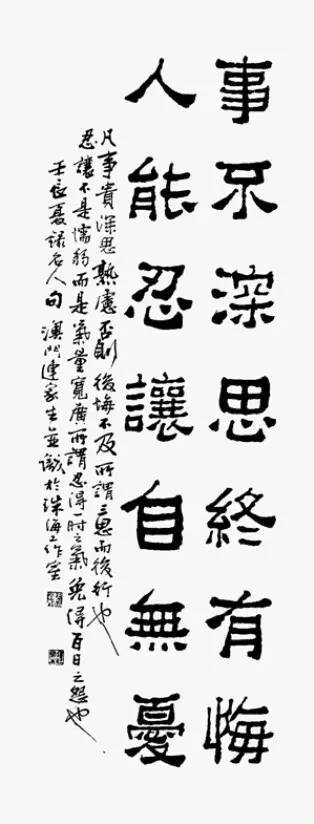 事不深思終有悔
人能忍讓自無憂
凡事貴深思熟慮否則後悔不及所謂三思而後行也
忍讓不是懦弱而是氣量寬廣所謂忍得一時之氣免得百日之怨也
壬辰夏録名人句 澳門連家生並識於珠海工作室